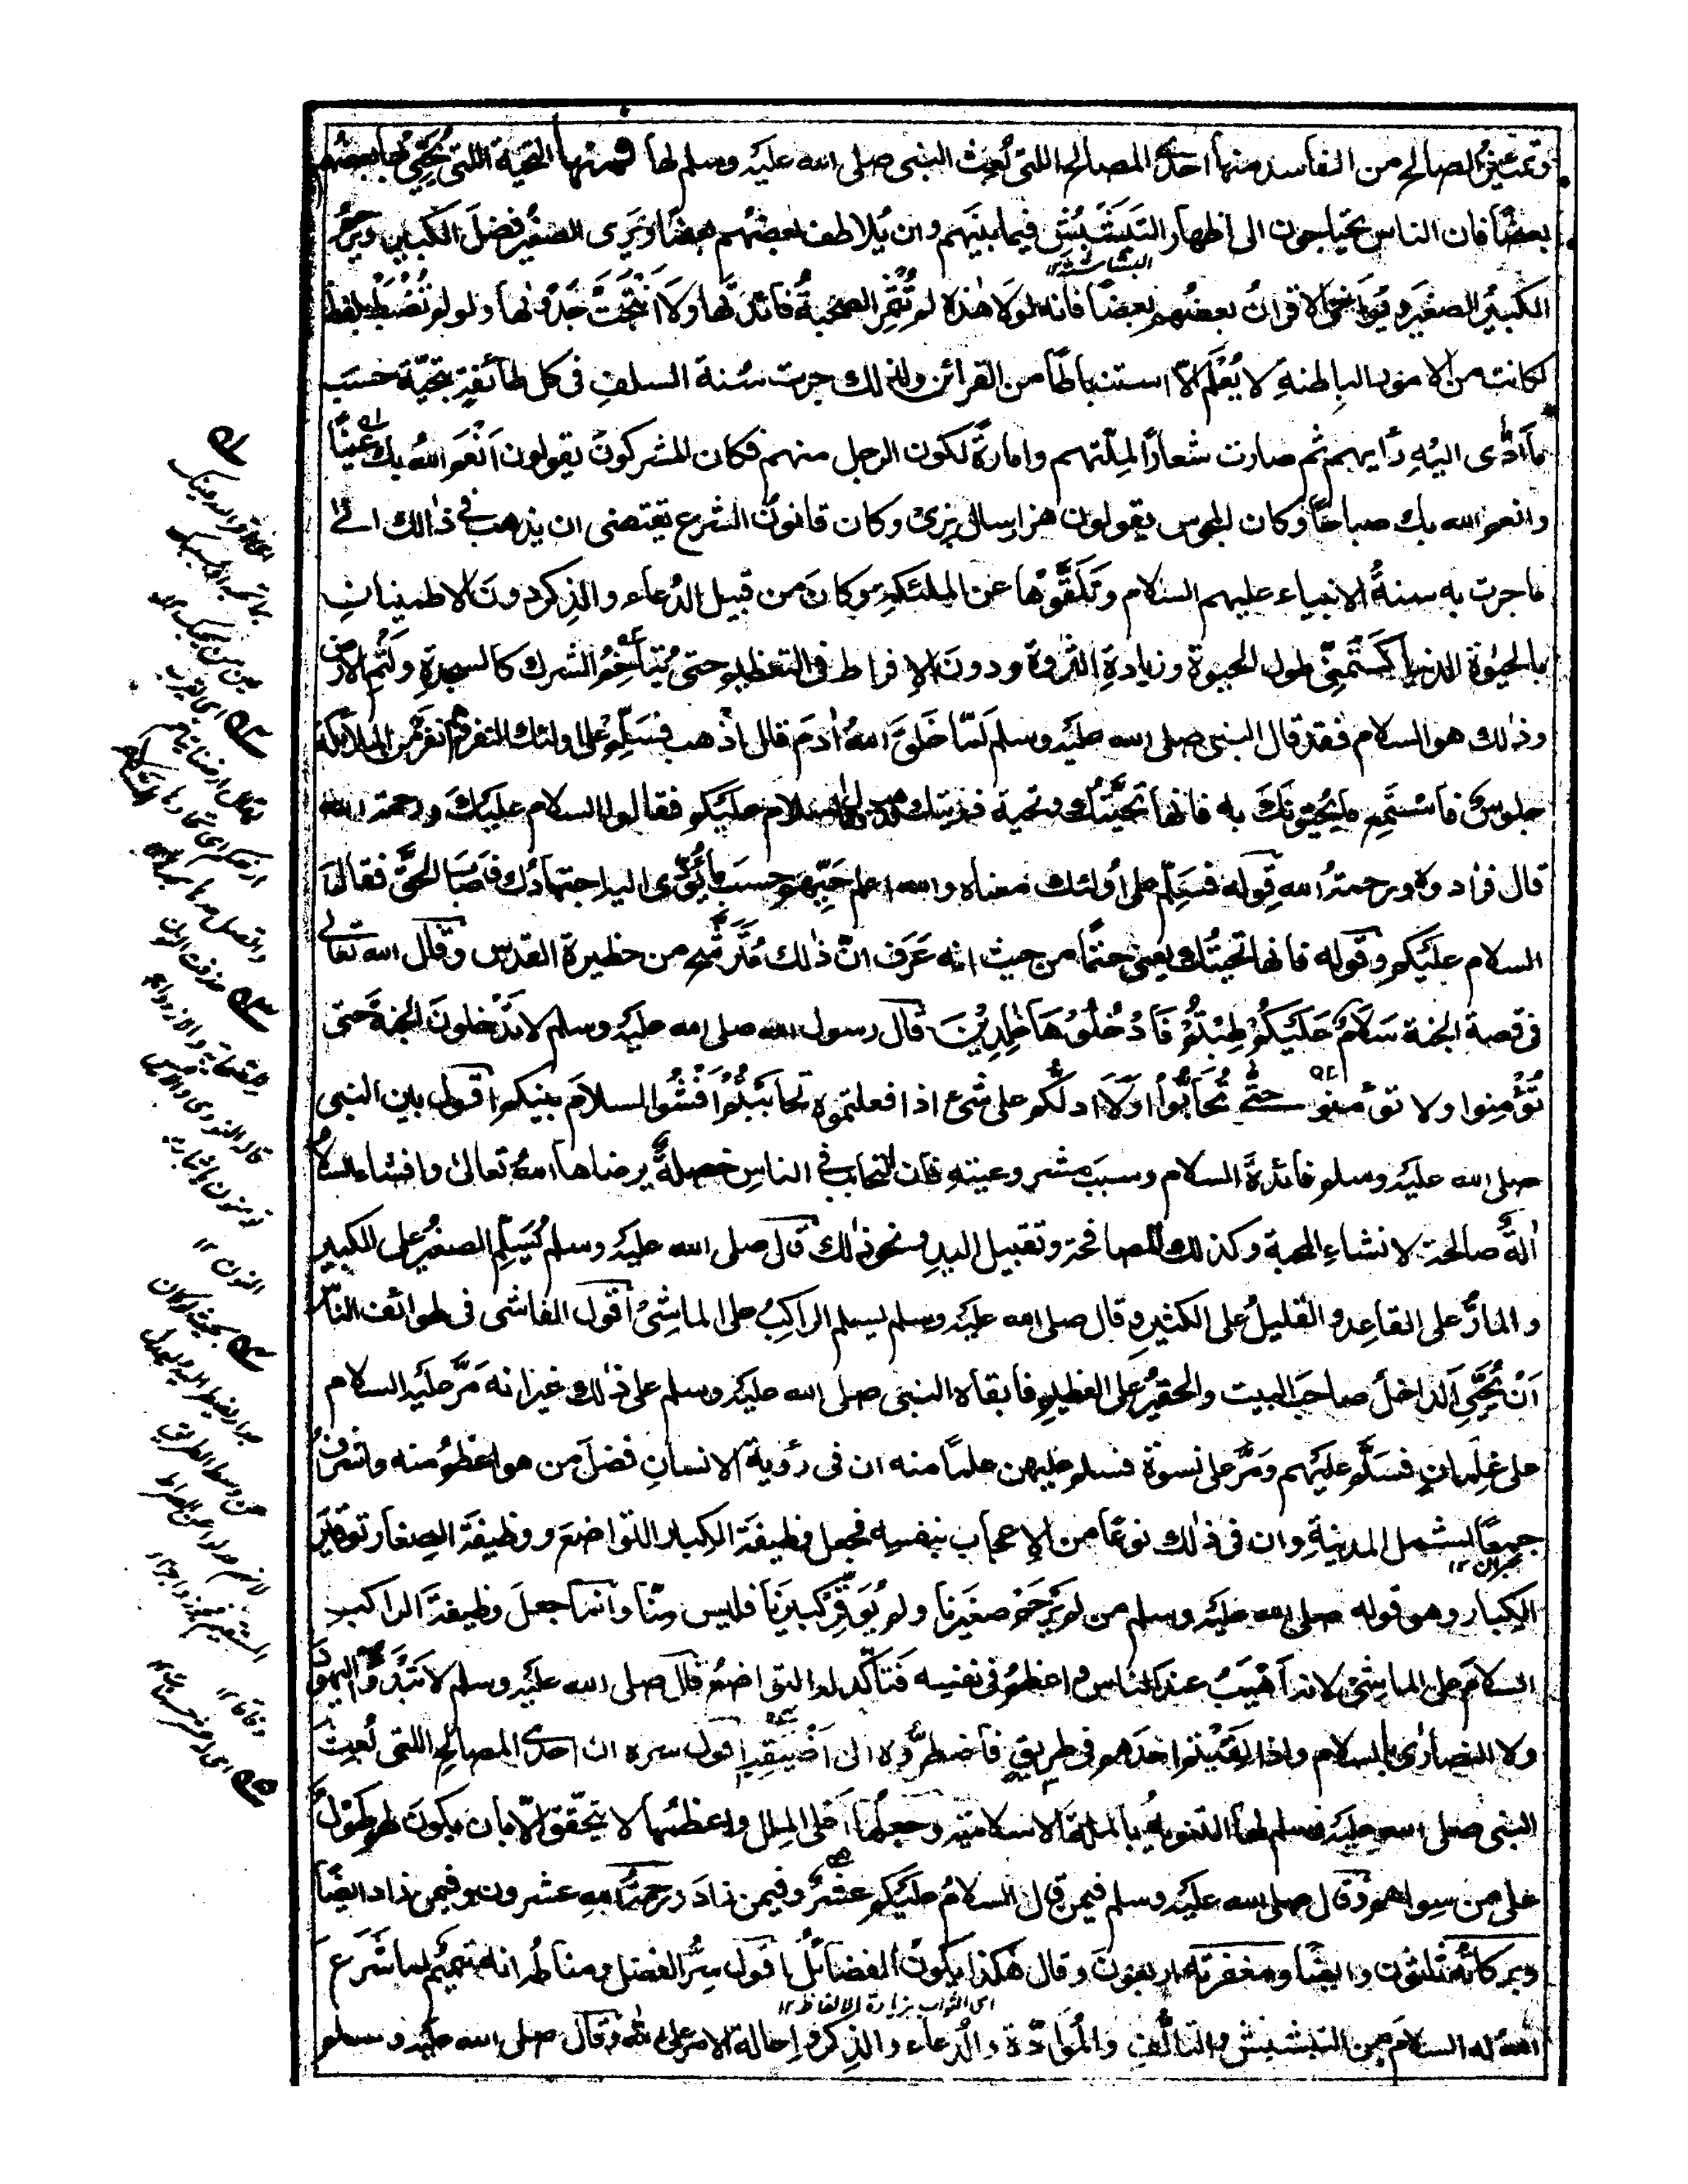 وتمييز الصالح من الفاسد منها احدى المصالح اللتى بُعِث النبى صلى الله عليه وسلم لها فمنها التحية اللتى يُحَيّى بها بعضهم
بعضًا فان الناس يحتاجون الى اظهار التَبَشْبُش فيما بينهم وان يُلاطف بعضُهم بعضًا ويَرى الصغيرُ فضلَ الكبير ويرحم
البشاشة ١٢
الكبيرُ الصغيرَ ويُواخى الاقرانُ بعضُهم بعضًا فانه لولا هٰذه لم تُثْمِر الصحبةُ فائدتَها ولا انتجت جَدْوٰها ولو لم تُضْبَط بلفظ
لكانت من الامور الباطنةِ لا يُعْلَم الّا استنباطًا من القرائن ولذلك جرت سُنة السلفِ فى كل طائفةٍ بتحيّة حسبَ
ما ادّى اليْهِ رأيهم ثم صارت شعارًا لمِلّتهم وامارةً لكون الرجل منهم فكان المشركونَ يقولون اَنْعَمَ اللهُ بك عينًا
وانعم الله بك صباحًا وكان المجوس يقولون هزار سال بزى وكان قانون الشرع يقتضى ان يذهب فى ذالك الى
ما جرت به سنةُ الانبياء عليهم السلام وتَلَقَّوْها عن الملئكة وكانَ من قبيل الدُعاء والذِكر دونَ الاطمينانِ
بالحيٰوة الدنيا كتَمَنّى طول الحيوة وزيادةِ الثروة ودونَ الإفراط فى التعظيم حتى يُتاخِمُ الشرك كالسجدةِ ولَثْمِ الارض
وذٰلك هو السلام فقد قال النبى صلى الله عليه وسلم لَمّا خَلَقَ اللهُ اٰدمَ قال اذْهب فسَلِّمْ على اولئك النفر وهم نفر من الملائكة
جلوسٌ فاسْتَمِع ما يُحَيُّونَكَ به فانها تحيَّتُك وتحية ذريتك فذهب فقال السلام عليكم فقالوا السلام عليكَ ورحمة الله
قال فزادوه ورحمةُ الله قوله فسَلِّم على اُولئك معناه والله اعلم حَيِّهم حسب ما يُؤَدّى اليه اجتهادُك فاَصَابَ الحقَّ فقالَ
السلام عليكم وقوله فانها تحيتُك يعنى حتمًا من حيث انه عَرَف انّ ذٰلك مُتَرَشّح من حظيرة القدس وقال الله تعالى
فى قصة الجنة سَلَامٌ عَلَيْكُمْ طِبْتُمْ فَادْخُلُوْهَا خٰلِدِيْنَ قال رسول الله صلى الله عليه وسلم لا تدْخلونَ الجنةَ حتى
تُؤْمِنوا ولا تؤمنوا حتّى تُحَابُّوْا اَوَلَا ادلُّكم على شئ اذا فعلتموه تحاببتُمْ اَفْشُوا السلامَ بينكم اقول بين النبى
صلى الله عليه وسلم فائدةَ السلام وسببَ مشروعيتهِ فان التحابب فى الناسِ خصلةٌ يرضاها اللهُ تعالىٰ وافشاء السلام
اٰلةٌ صالحة لانشاءِ المحبة وكذلك المصافحة وتقبيل اليدِ ونحو ذٰلك قال صلى الله عليه وسلم يُسَلِّم الصغيرُ على الكبير
والمارُّ على القاعِد والقليلُ على الكثير وقال صلى الله عليه وسلم يسلم الراكبُ على الماشِى اقول الفاشى فى طوائف الناس
اَنْ يُحَيِّىَ الداخلُ صاحبَ البيت والحقيرُ على العظيم فابقاه النبى صلى الله عليه وسلم على ذٰلك غير انه مَرَّ عليه السلام
على غِلمانٍ فسَلَّم عليهم ومَرَّ على نسوة فسلم عليهن علمًا منه ان فى رؤية الانسانِ فضلَ من هو اعظم منه واشرف
جمعًا لشمل المدينةِ وان فى ذٰلك نوعًا من الإعجاب بنفسِه فجعل وظيفةَ الكبار التواضعَ ووظيفةَ الصِغار توقيرَ
الكِبار وهو قوله صلى الله عليه وسلم من لم يَرْحَمْ صغيرَنا ولم يُوَقِّرْ كبيرَنا فليس مِنّا وانما جعلَ وظيفةَ الراكب
السلامَ على الماشِى لانه اَهْيَبُ عند الناس واعظمُ فى نفسِه فتأكّد له التواضعُ قال صلى الله عليه وسلم لا تَبْدَؤُا اليهودَ
ولا النصارٰى بالسلام واذا لَقِيْتُم احدَهم فى طريقٍ فاضطرُّوه الى اَضْيَقِه اقول سره ان احدى المصالح اللتى بُعِثَ
النبى صلى الله عليه وسلم لها التنويه بالملة الاسلامية وجعلها اعلى المِلل واعظمها لا يتحقق الّا بان يكونَ لهم طَوْلٌ
على من سِواهم وقال صلى الله عليه وسلم فيمن قال السلامُ عليكم عشرٌ وفيمن زادَ ورحمةُ اللهِ عشرون وفيمن زاد ايضًا
وبركاتُه ثلثون وايضًا ومغفرته اربعون وقال هٰكذا يكونُ الفضائلُ اقول سِرُّ الفضل ومناطُه انه تتميم لما شرع
اى الثواب بزيادة الالفاظ ١٢
اللهُ له السلامَ من التبشبش والتألُّفِ والمُوادّة والدُعاء والذِكر واحالة الامر على الله وقال صلى الله عليه وسلم